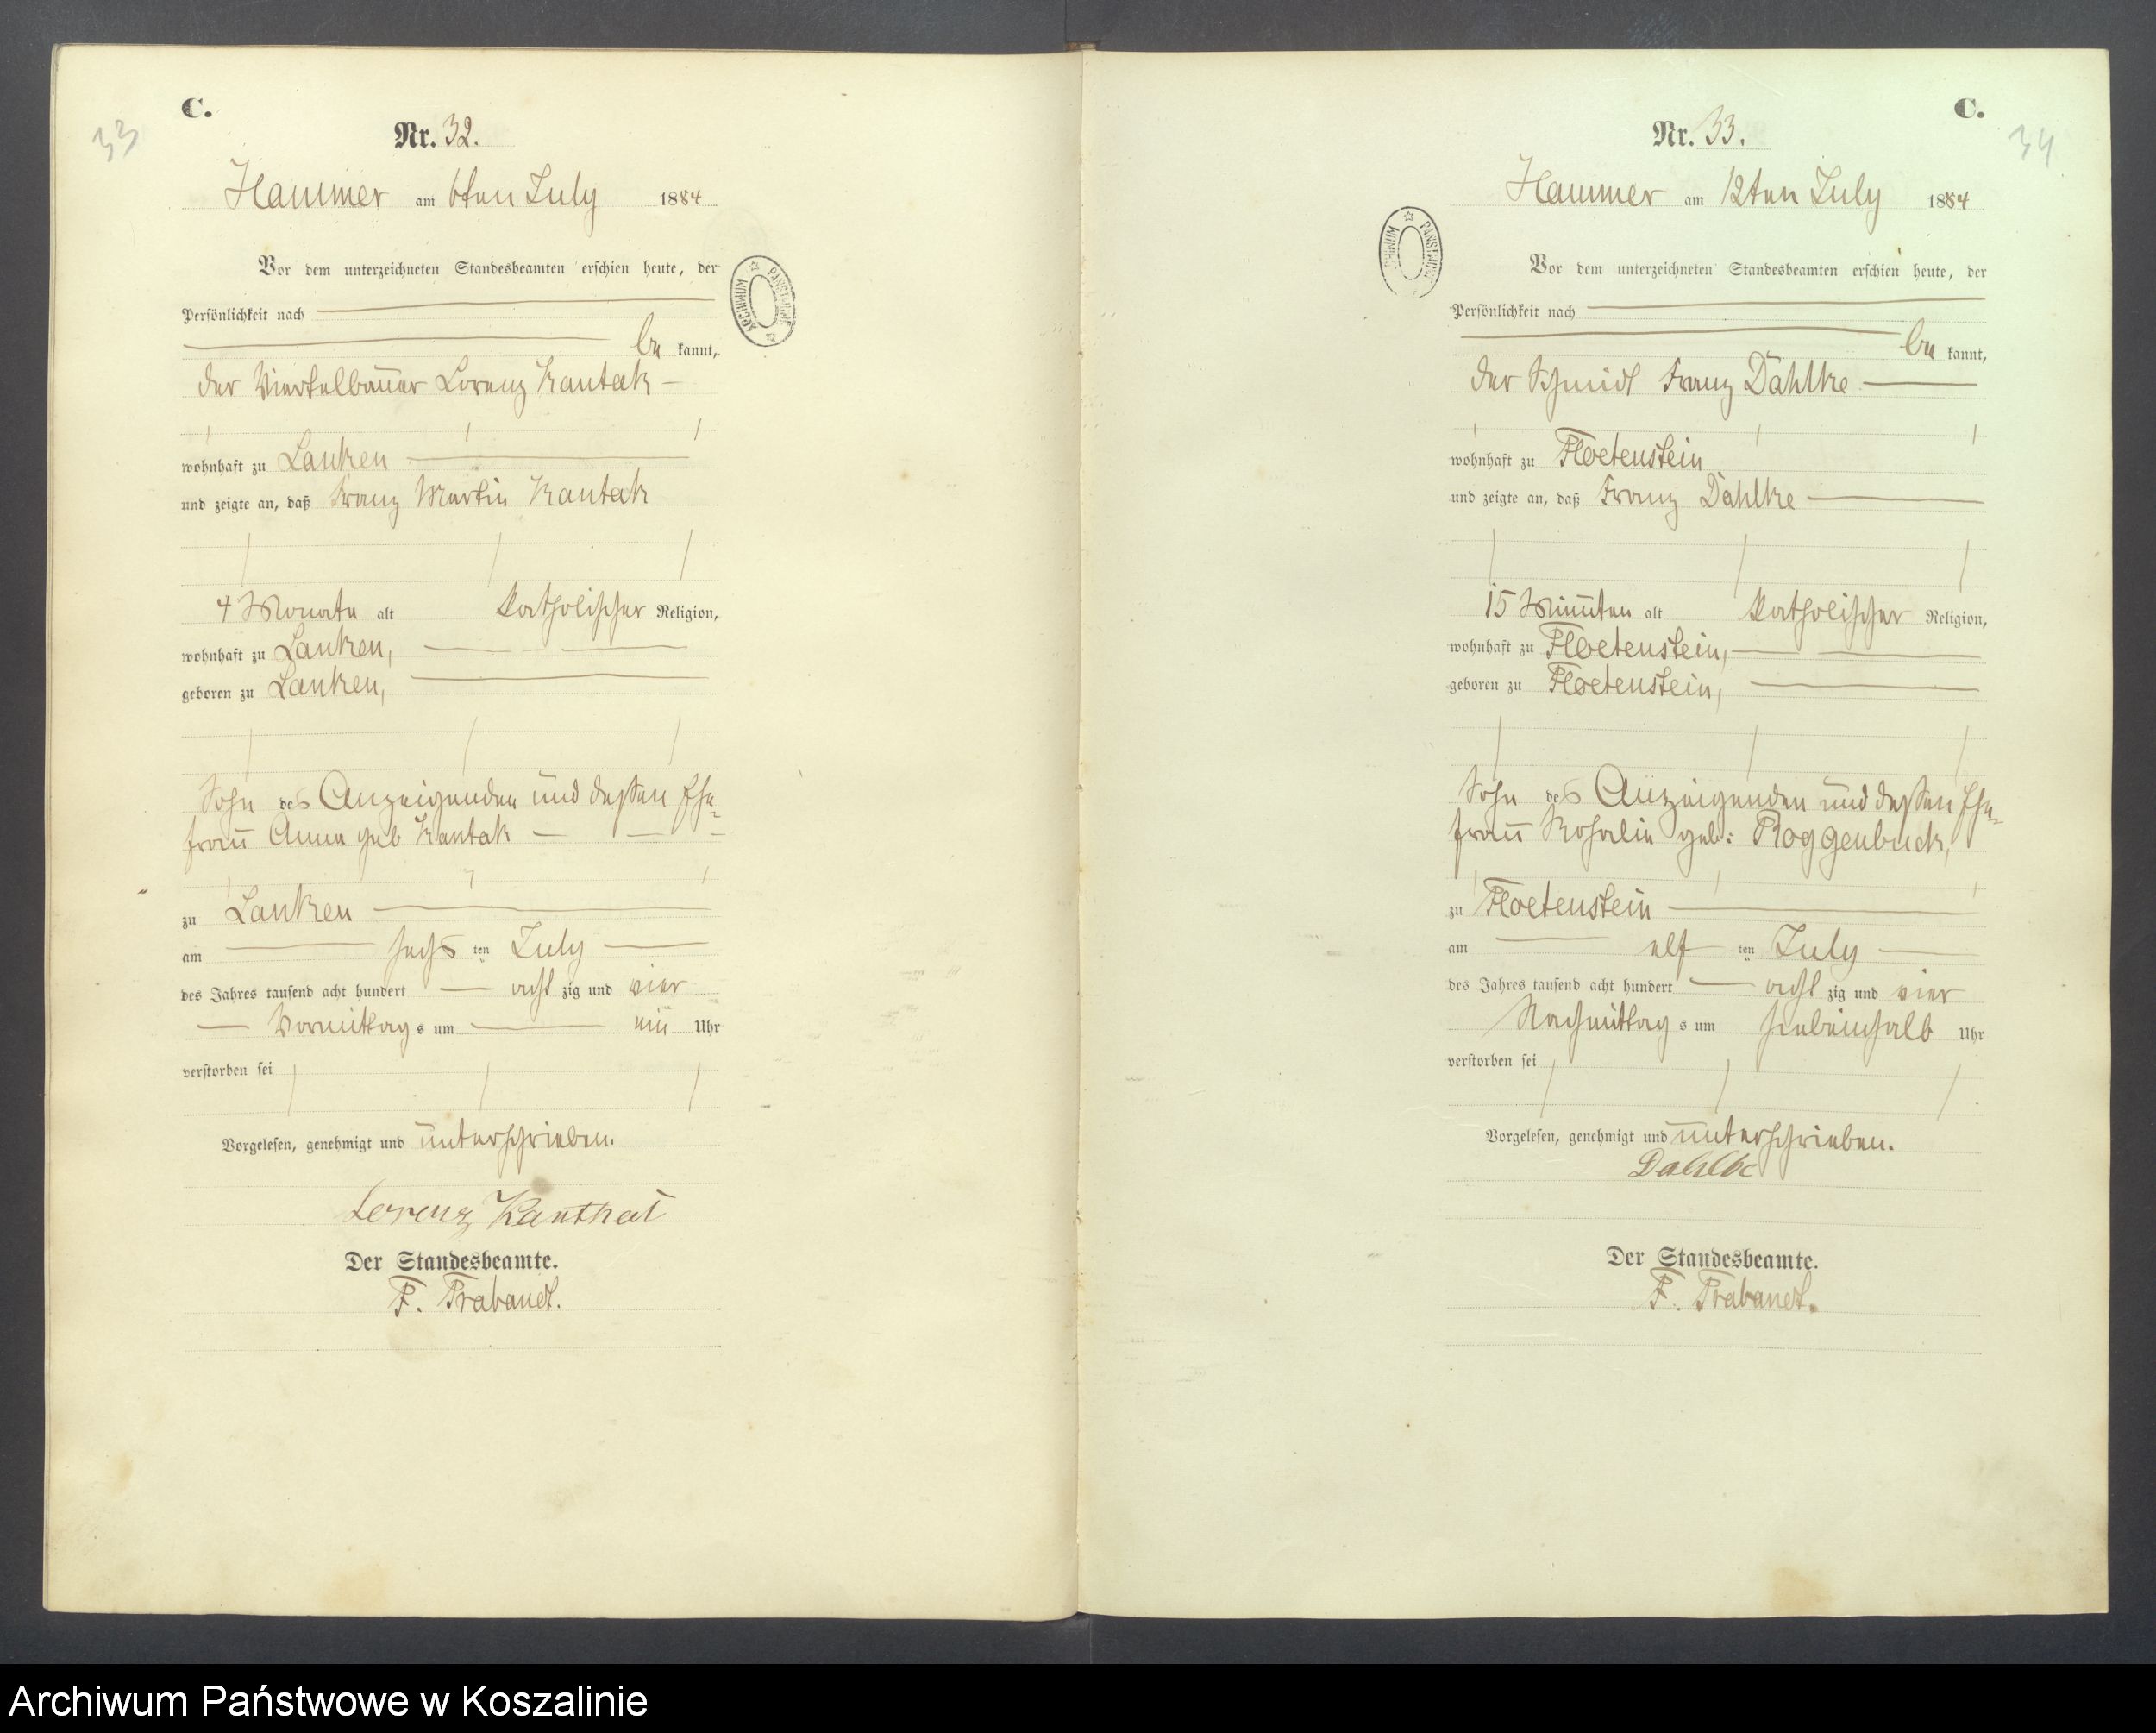 33
C.
Nr. 32.
Hammer am 6ten July 1884
Vor dem unterzeichneten Standesbeamten erschien heute, der
Persönlichkeit nach
be kannt,
der Viertelbauer Lorenz Kantak
wohnhaft zu Lanken
und zeigte an, daß Franz Martin Kantak
4 Monate alt Katholischer Religion,
wohnhaft zu Lanken,
geboren zu Lanken,
Sohn des Anzeigenden und dessen Ehe-
frau Anna geb Kantak
zu Lanken
am sechs ten July
des Jahres tausend acht hundert acht zig und vier
Vormittag s um Uhr
verstorben sei
Vorgelesen, genehmigt und unterschrieben.
Lorenz Kanthak
Der Standesbeamte.
F. Trabandt.
ARCHIWUM PAŃSTWOWE
C.
34
Nr. 33.
Hammer am 12ten July 1884
Vor dem unterzeichneten Standesbeamten erschien heute, der
Persönlichkeit nach
be kannt,
der Schmidt Franz Dahlke
wohnhaft zu Floetenstein
und zeigte an, daß Franz Dahlke
15 Minuten alt Katholischer Religion,
wohnhaft zu Floetenstein,
geboren zu Floetenstein,
Sohn des Anzeigenden und dessen Ehe-
frau Rosalie geb: Roggenbuck,
zu Floetenstein
am elf ten July
des Jahres tausend acht hundert acht zig und vier
Nachmittag s um siebeneinhalb Uhr
verstorben sei
Vorgelesen, genehmigt und unterschrieben.
Dahlke
Der Standesbeamte.
F. Trabandt.
ARCHIWUM PAŃSTWOWE
Archiwum Państwowe w Koszalinie